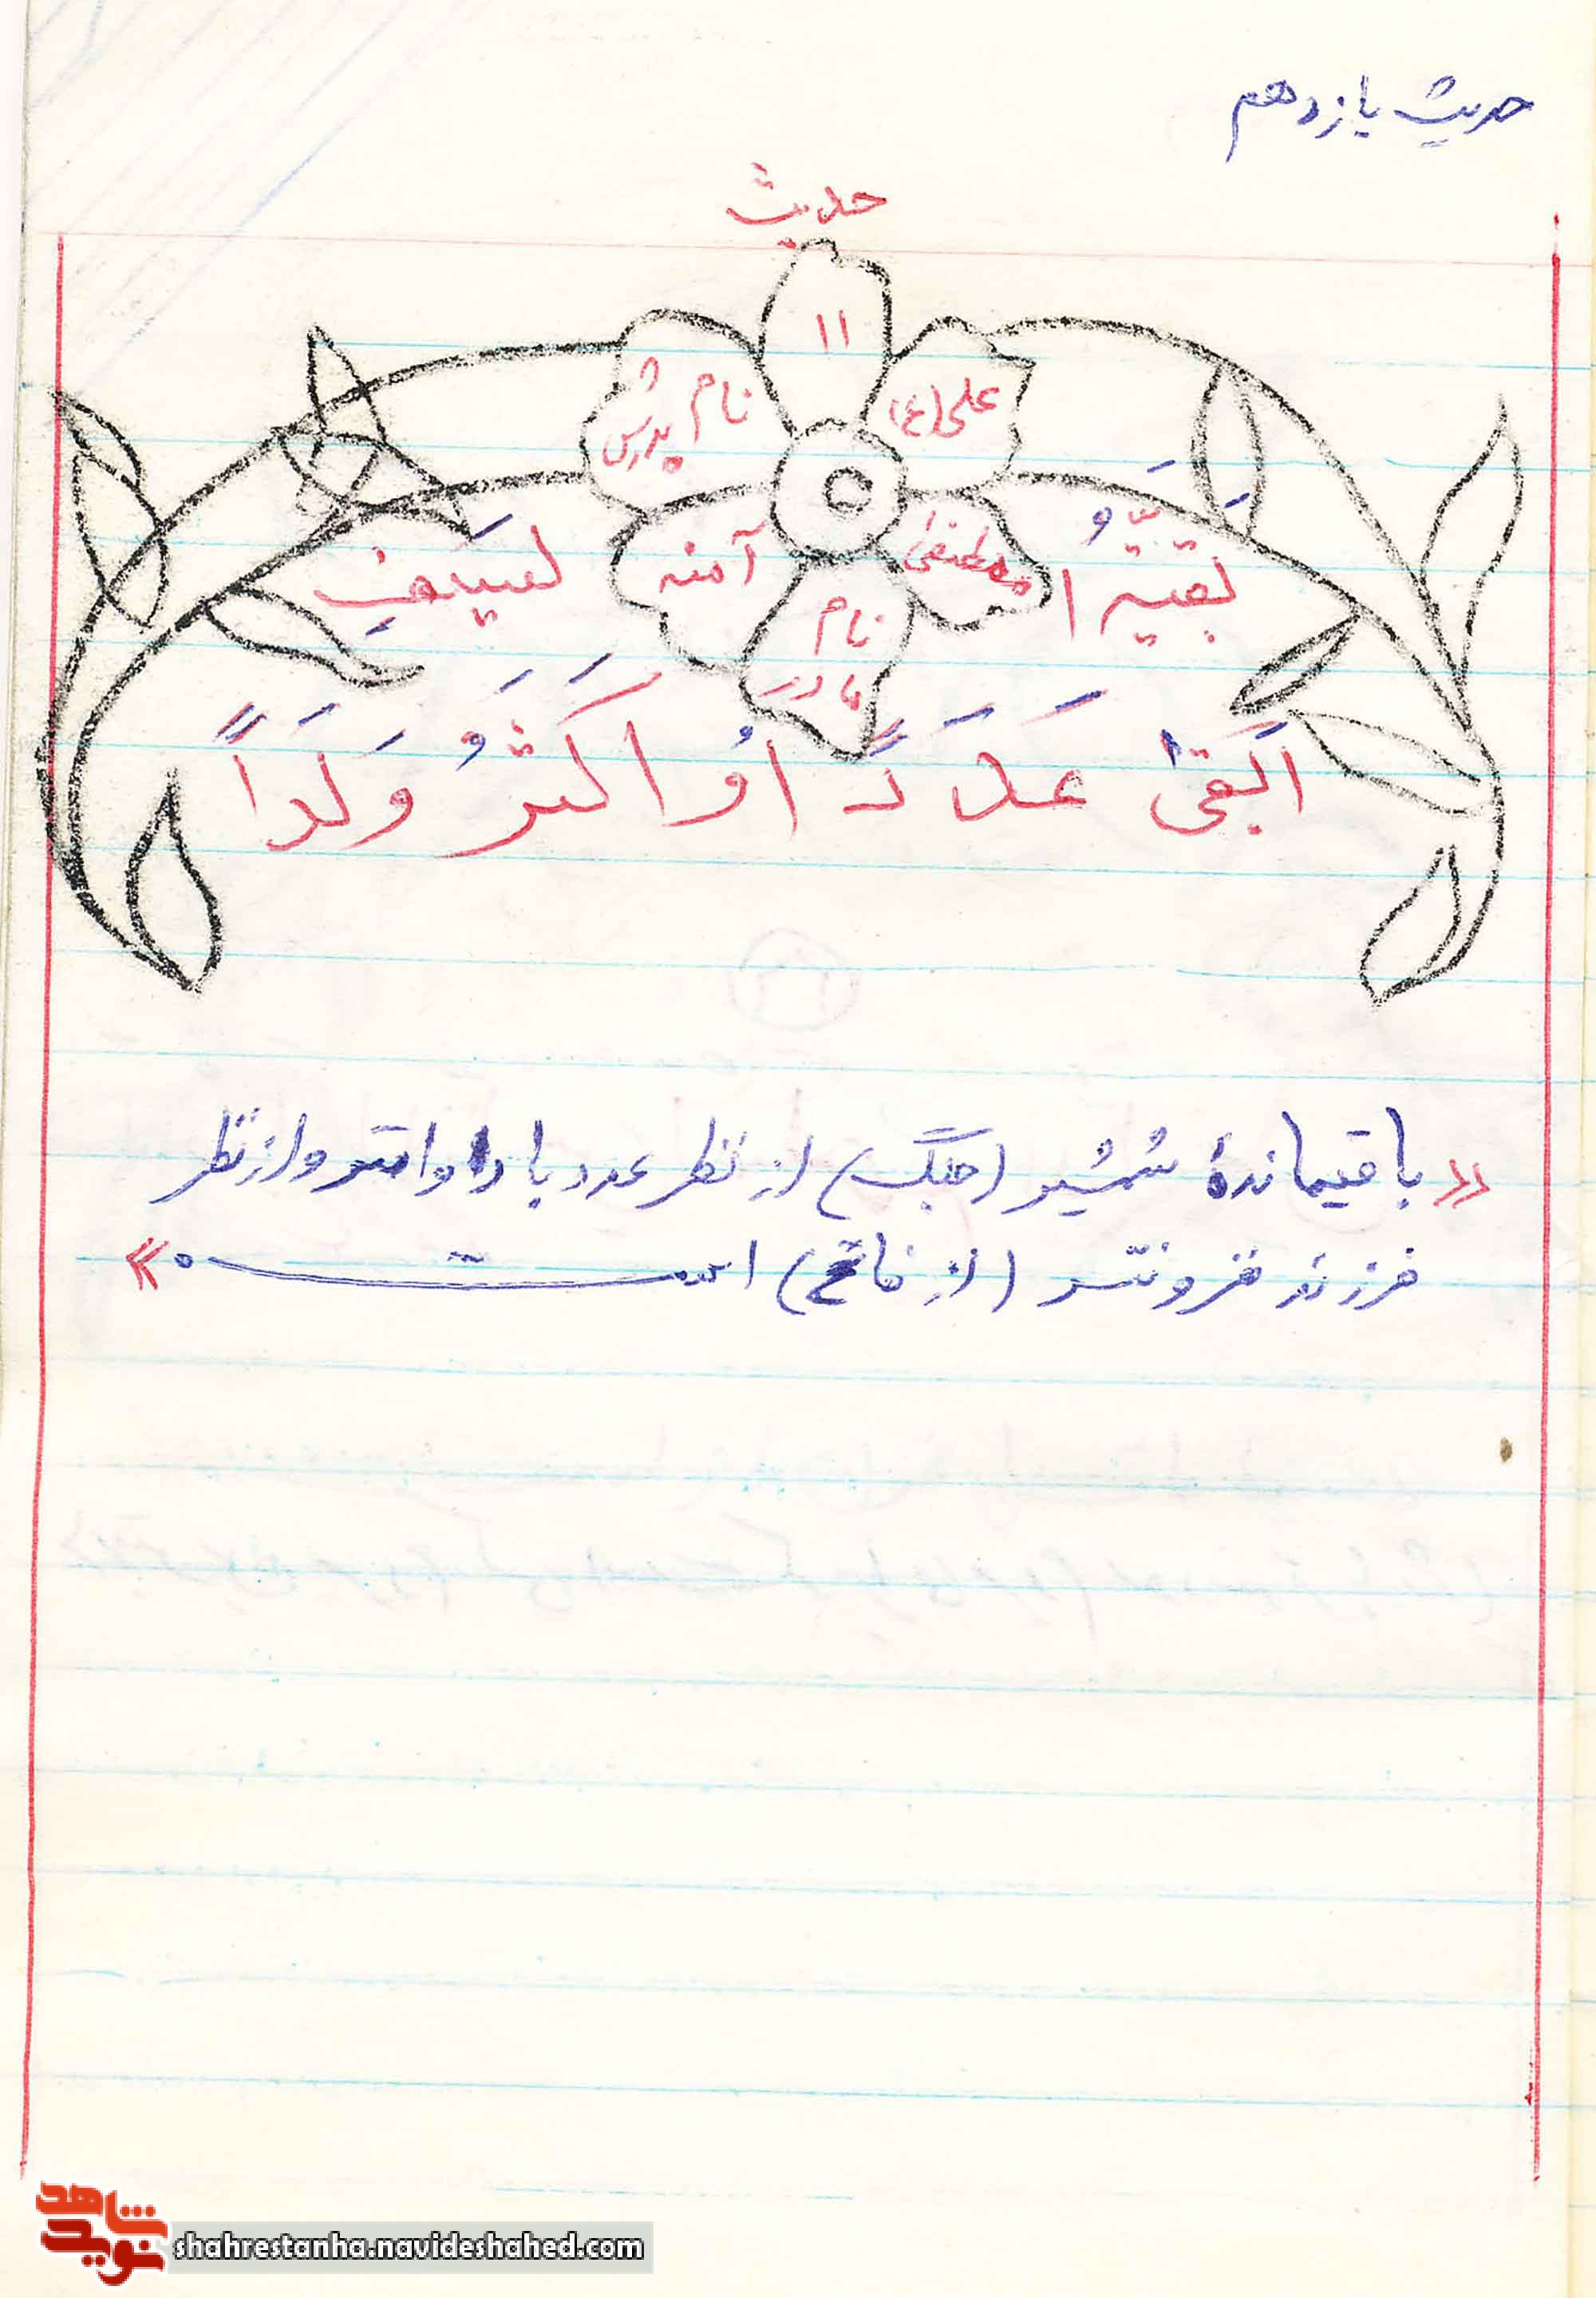 حدیث یازدهم
حدیث
۱۱
علی (ع)
نام پدرش
مصطفی
آمنه
نام مادر
بَقیَّهُ ا لسَیفِ
اَبقیٰ عَدَدَاً اوُ اَکثَرُ وَلَدَاً
«باقیماندهٔ شمشیر (جنگ) از نظر عدد با دوامتر و از نظر
فرزند فزونتر (از فاتح) است ه»
نوید شاهد
shahrestanha.navideshahed.com